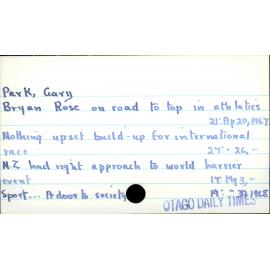 Park, Gary
Bryan Rose on road to top in athletics
21: Ap 20, 1967
Nothing upset build-up for international
race 27: - 26, -
N.Z. had right approach to world harrier
event 17: My 3, -
Sport... A door to society 19: - 1968
OTAGO DAILY TIMES